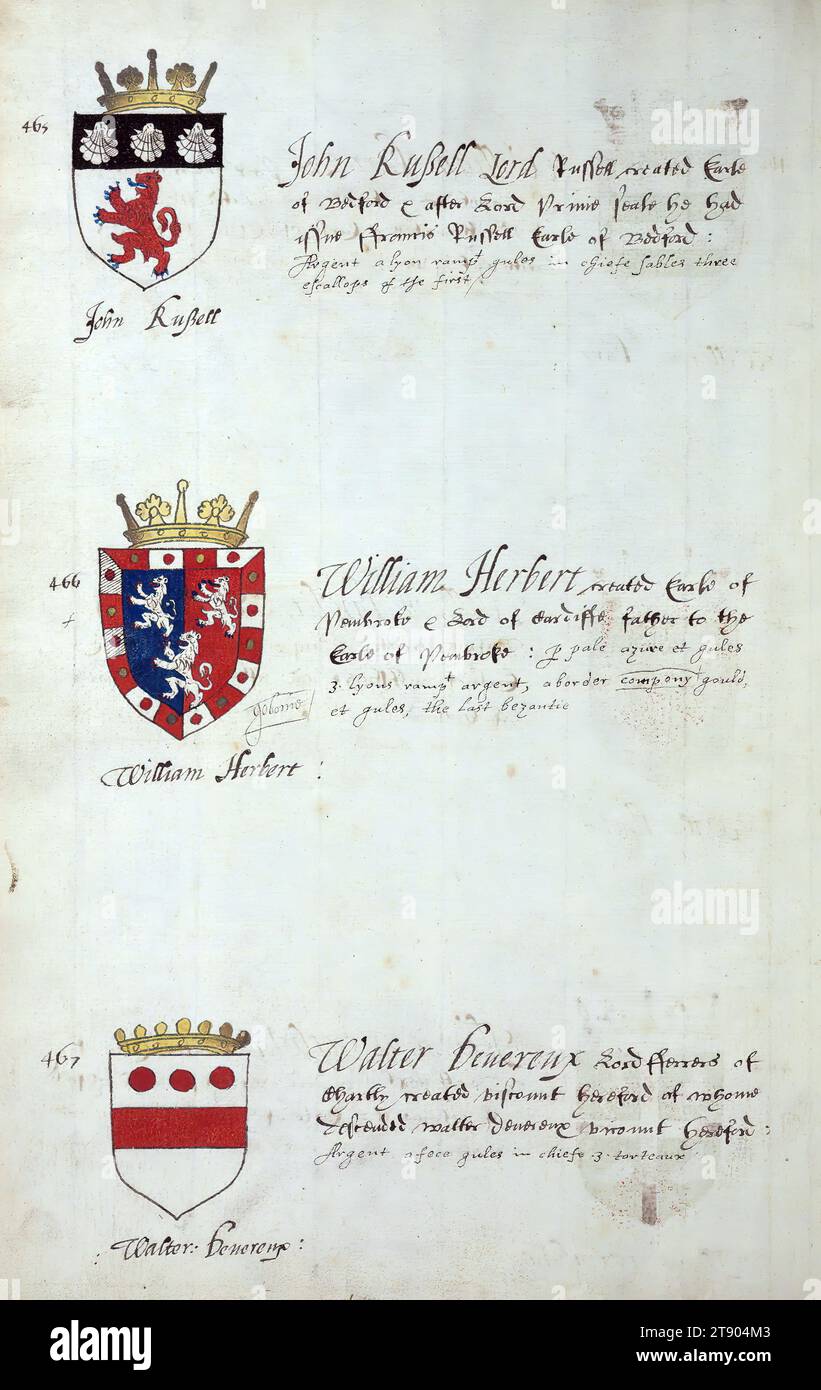 465
John Rußell Lord Russell created Earle
of Bedford & after Lord Privie seale he had
issue Ffrancis Russell Earle of Bedford :
Argent a lyon rampt gules in chiefe sables three
escallops of the first/
John Rußell
466
+
William Herbert created Earle of
Pembroke & Lord of Cardiffe father to the
Earle of Pembroke : p pale azure et gules
3. lyons rampt argent, a border compony gould,
et gules, the last bezantie
gobonie
William Herbert :
467
Walter Devereux Lord fferrers of
Chartly created viscount hereford of whome
descended walter Devereux vicount hereford :
Argent a fece gules in chiefe 3. torteaux
: Walter: Devereux :
alamy
alamy
alamy
alamy
a
a
a
a
alamy
Image ID: 2T904M3
www.alamy.com